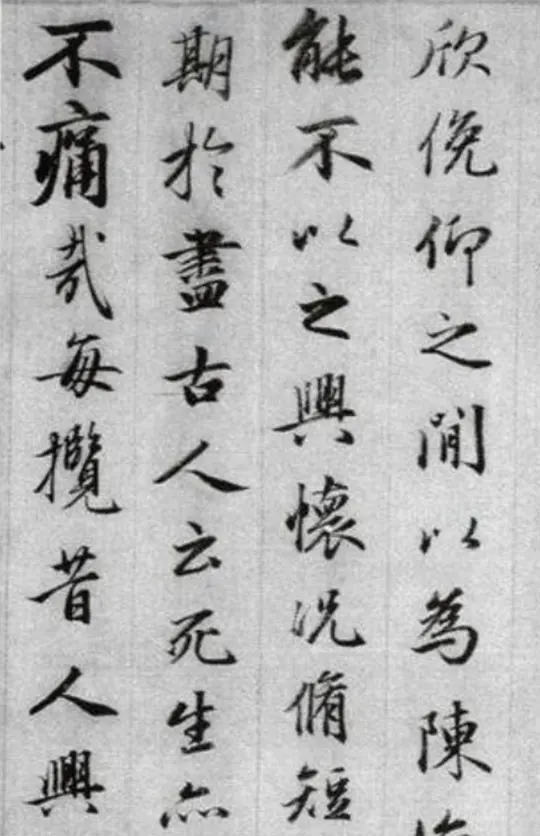 欣俛仰之閒以為陳
能不以之興懷況脩短
期於盡古人云死生亦
不痛哉每攬昔人興